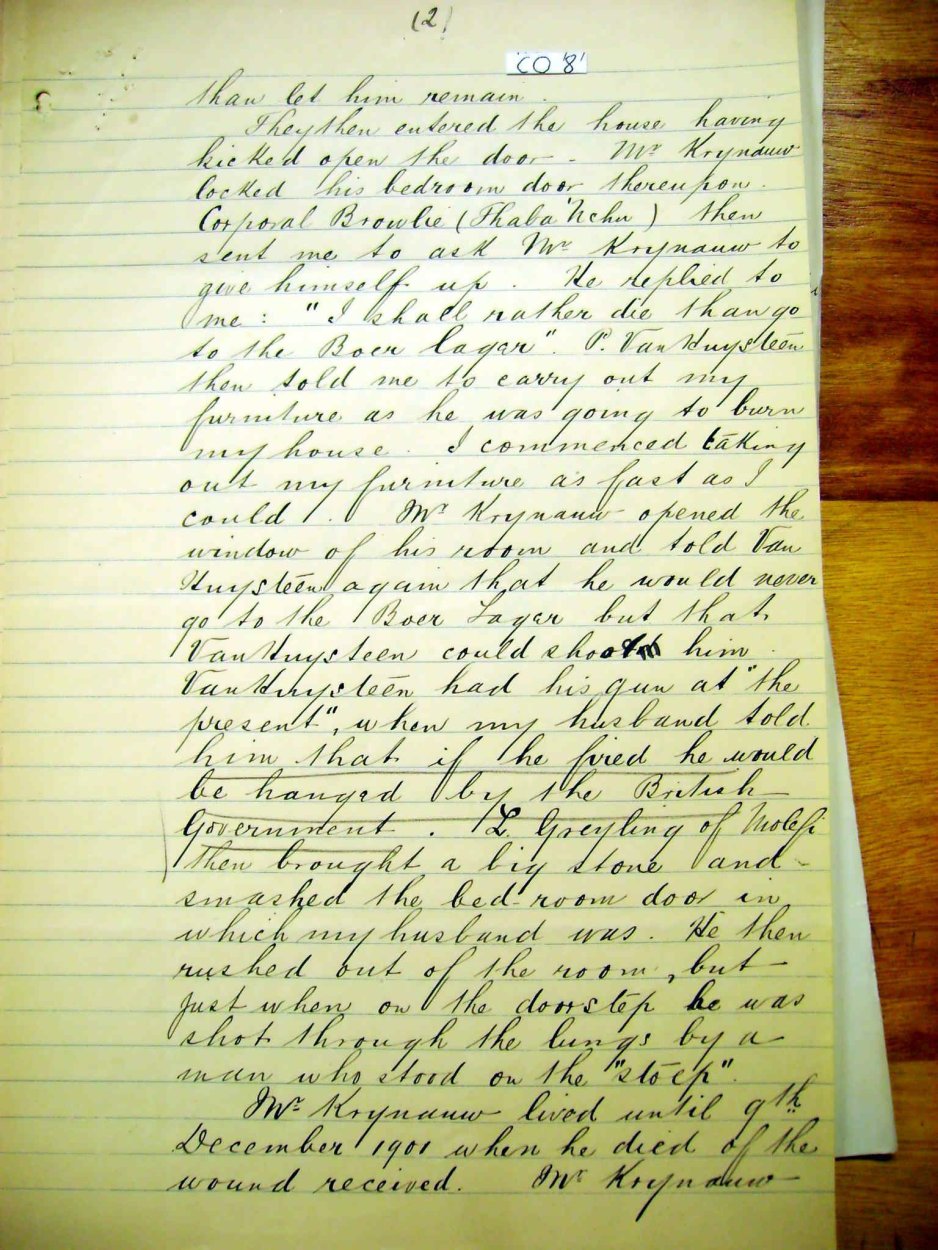 (2)
CO '8'
than let him remain.
They then entered the house having
kicked open the door - Mr Krynauw
locked his bedroom door thereupon.
Corporal Browlie (Thaba 'Nchu) then
sent me to ask Mr Krynauw to
give himself up. He replied to
me: "I shall rather die than go
to the Boer lager". P. Van Huysteen
then told me to carry out my
furniture as he was going to burn
my house. I commenced taking
out my furniture as fast as I
could. Mr Krynauw opened the
window of his room and told Van
Huysteen again that he would never
go to the Boer Lager but that
Van Huysteen could shoot him.
Van Huysteen had his gun at "the
present", when my husband told
him that if he fired he would
be hanged by the British
Government. L. Greyling of Molefi
then brought a big stone and
smashed the bed-room door in
which my husband was. He then
rushed out of the room, but
just when on the doorstep he was
shot through the lungs by a
man who stood on the "stoep".
Mr Krynauw lived until 9th
December 1901 when he died of the
wound received. Mr Krynauw